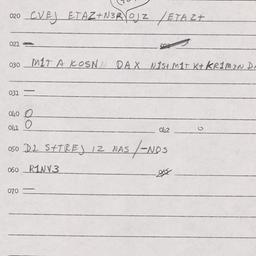 020 CVEJ ETAZ+N3R OJZ /ETAZ+
021 —
030 M1T A KOSN DAX N1S+M1T K+KR1M3N
031 —
040 0
041 0 042 0
050 D2 S+TREJ 12 NAS/-NDS
060 R1NV3
070 —